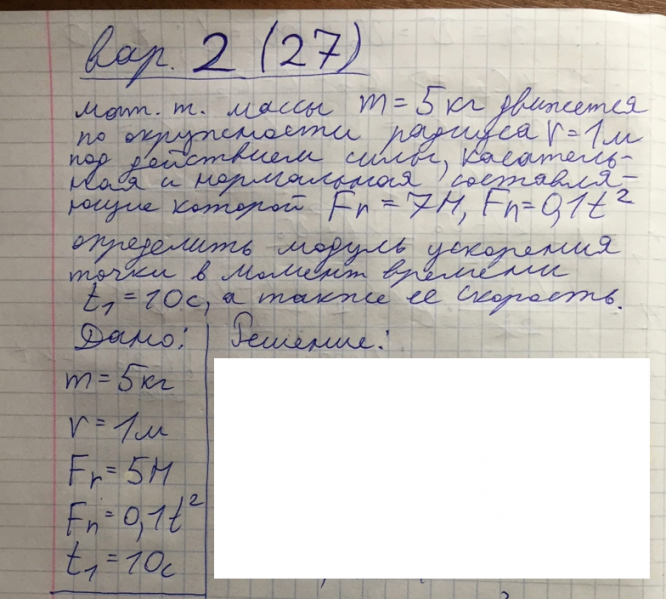 вар. 2 (27)
мат. т. массы m = 5 кг движется
по окружности радиуса r = 1 м
под действием силы, касатель-
ная и нормальная составля-
ющие которой Fτ = 7 Н, Fn = 0,1t²
определить модуль ускорения
точки в момент времени
t₁ = 10 с, а также ее скорость.
Дано: Решение:
m = 5 кг
r = 1 м
Fτ = 5 Н
Fn = 0,1t²
t₁ = 10 с